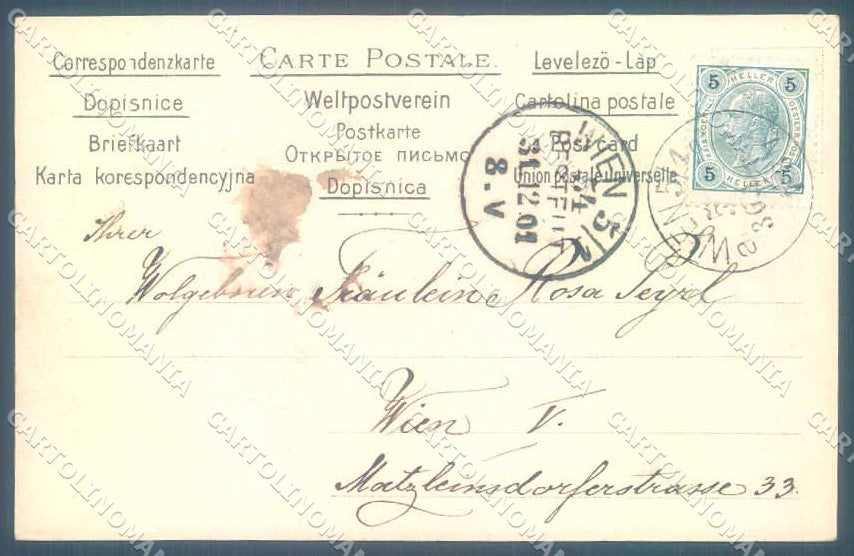 Correspondenzkarte
Dopisnice
Briefkaart
Karta korespondencyjna
CARTE POSTALE.
Weltpostverein
Postkarte
ОТКРЫТОЕ ПИСЬМО
Dopisnica
Levelező - Láp
Cartolina postale
a Post card
Union postale universelle
5 HELLER 5
5 HELLER 5
WIEN 5/1
BESTELLT
31.12.01
8.V
WIEN 5/1
Ihrer
Wolgebornen Fräulein Rosa Seyrl
Wien V.
Matzleinsdorferstrasse 33.
CARTOLINOMANIA